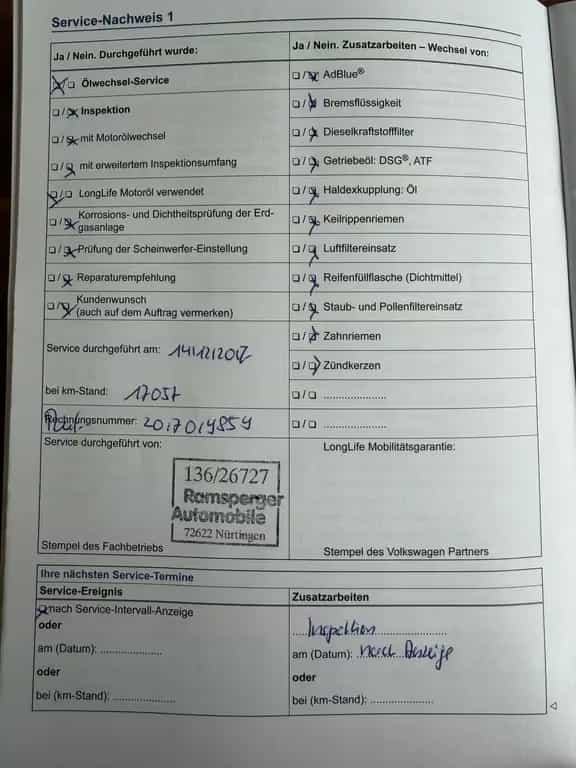 Service-Nachweis 1
Ja / Nein. Durchgeführt wurde:
❑/❑ Ölwechsel-Service
❑/❑ Inspektion
❑/❑ mit Motorölwechsel
❑/❑ mit erweitertem Inspektionsumfang
❑/❑ LongLife Motoröl verwendet
❑/❑ Korrosions- und Dichtheitsprüfung der Erd-
gasanlage
❑/❑ Prüfung der Scheinwerfer-Einstellung
❑/❑ Reparaturempfehlung
❑/❑ Kundenwunsch
(auch auf dem Auftrag vermerken)
Service durchgeführt am: 14/12/2017
bei km-Stand: 17057
Rechnungsnummer: 207019859
Service durchgeführt von:
136/26727
Ramsperger
Automobile
72622 Nürtingen
Stempel des Fachbetriebs
Ja / Nein. Zusatzarbeiten – Wechsel von:
❑/❑ AdBlue®
❑/❑ Bremsflüssigkeit
❑/❑ Dieselkraftstofffilter
❑/❑ Getriebeöl: DSG®, ATF
❑/❑ Haldexkupplung: Öl
❑/❑ Keilrippenriemen
❑/❑ Luftfiltereinsatz
❑/❑ Reifenfüllflasche (Dichtmittel)
❑/❑ Staub- und Pollenfiltereinsatz
❑/❑ Zahnriemen
❑/❑ Zündkerzen
❑/❑ .....................
❑/❑ .....................
LongLife Mobilitätsgarantie:
Stempel des Volkswagen Partners
Ihre nächsten Service-Termine
Service-Ereignis
❑ nach Service-Intervall-Anzeige
oder
am (Datum): .....................
oder
bei (km-Stand): .....................
Zusatzarbeiten
Inspektion
am (Datum): nach Anzeige
oder
bei (km-Stand): .....................